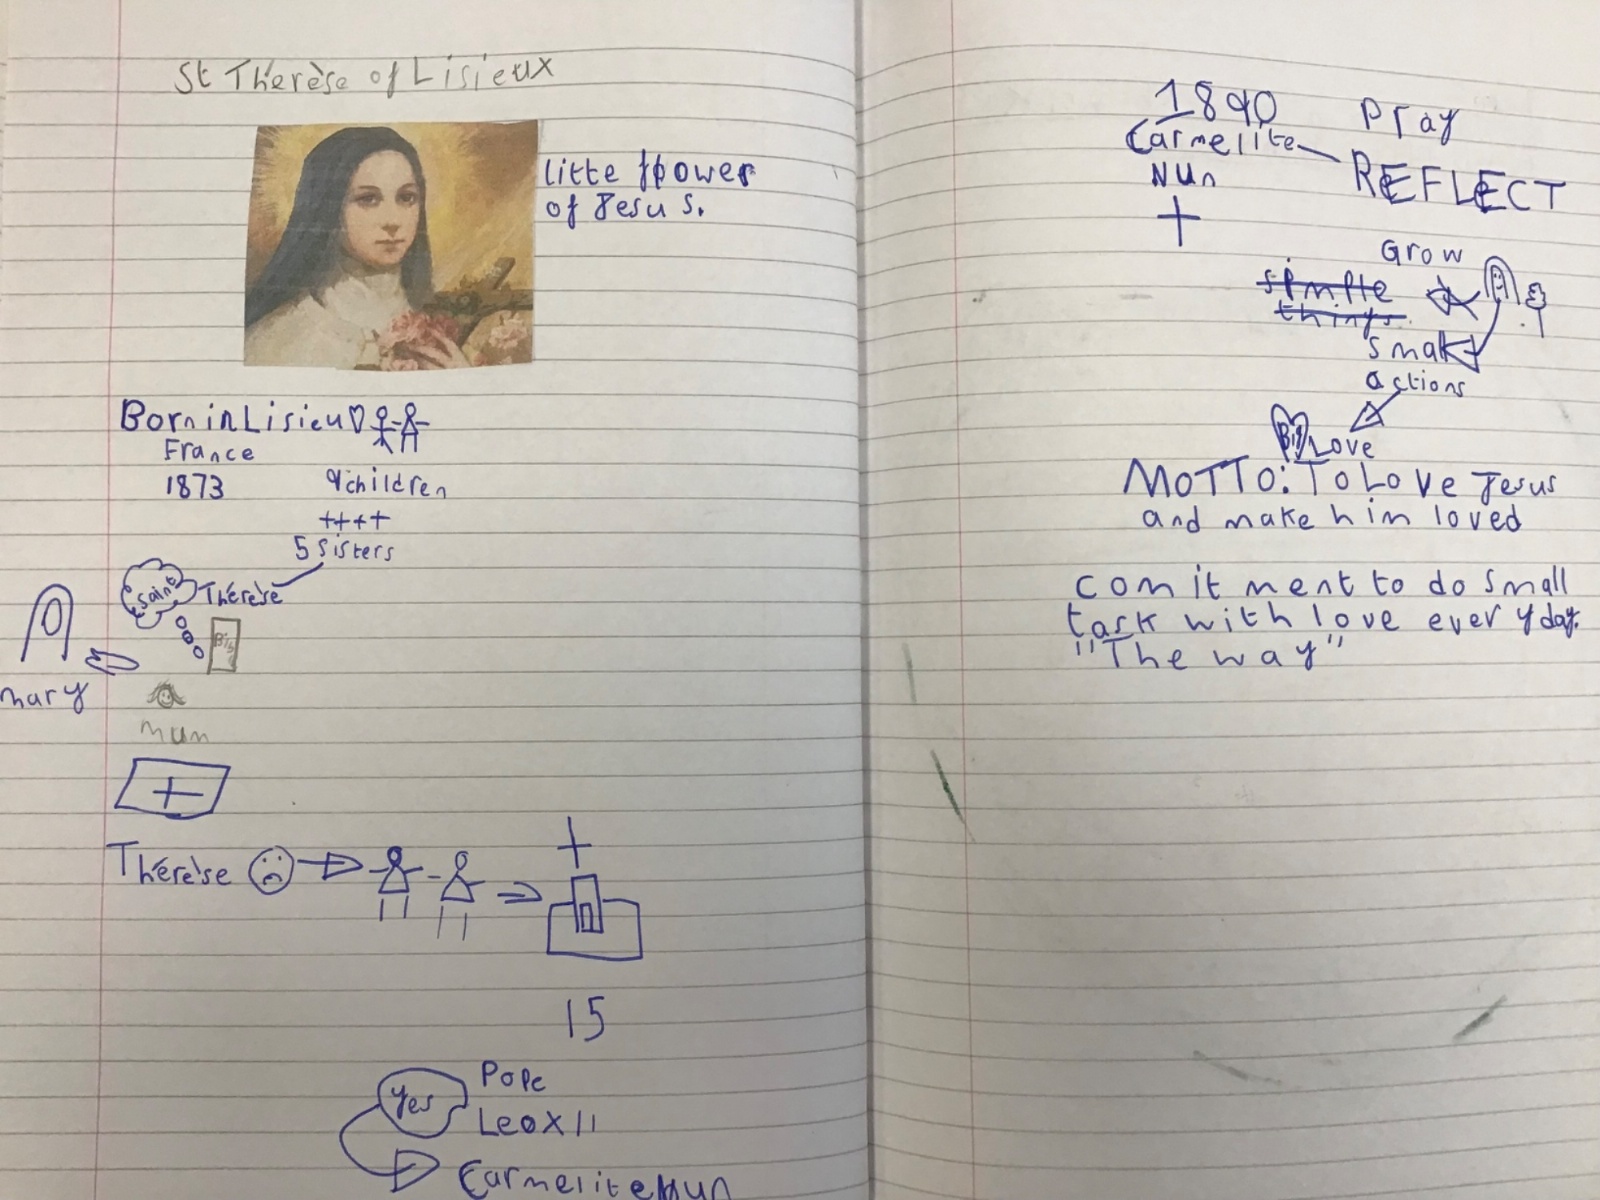 St Thérèse of Lisieux
Litte flower
of Jesus.
Born in Lisieu
France
1873
9 children
++++
5 sisters
Saint
Thérèse
Bib
mary
mum
Thérèse
15
Yes
Pope
Leo X11
Carmelite Nun
1890
Carmelite
Nun
Pray
REFLECT
Grow
simple
things.
small
actions
Big Love
MOTTO: To Love Jesus
and make him loved
comitment to do small
task with love everyday.
"The way"